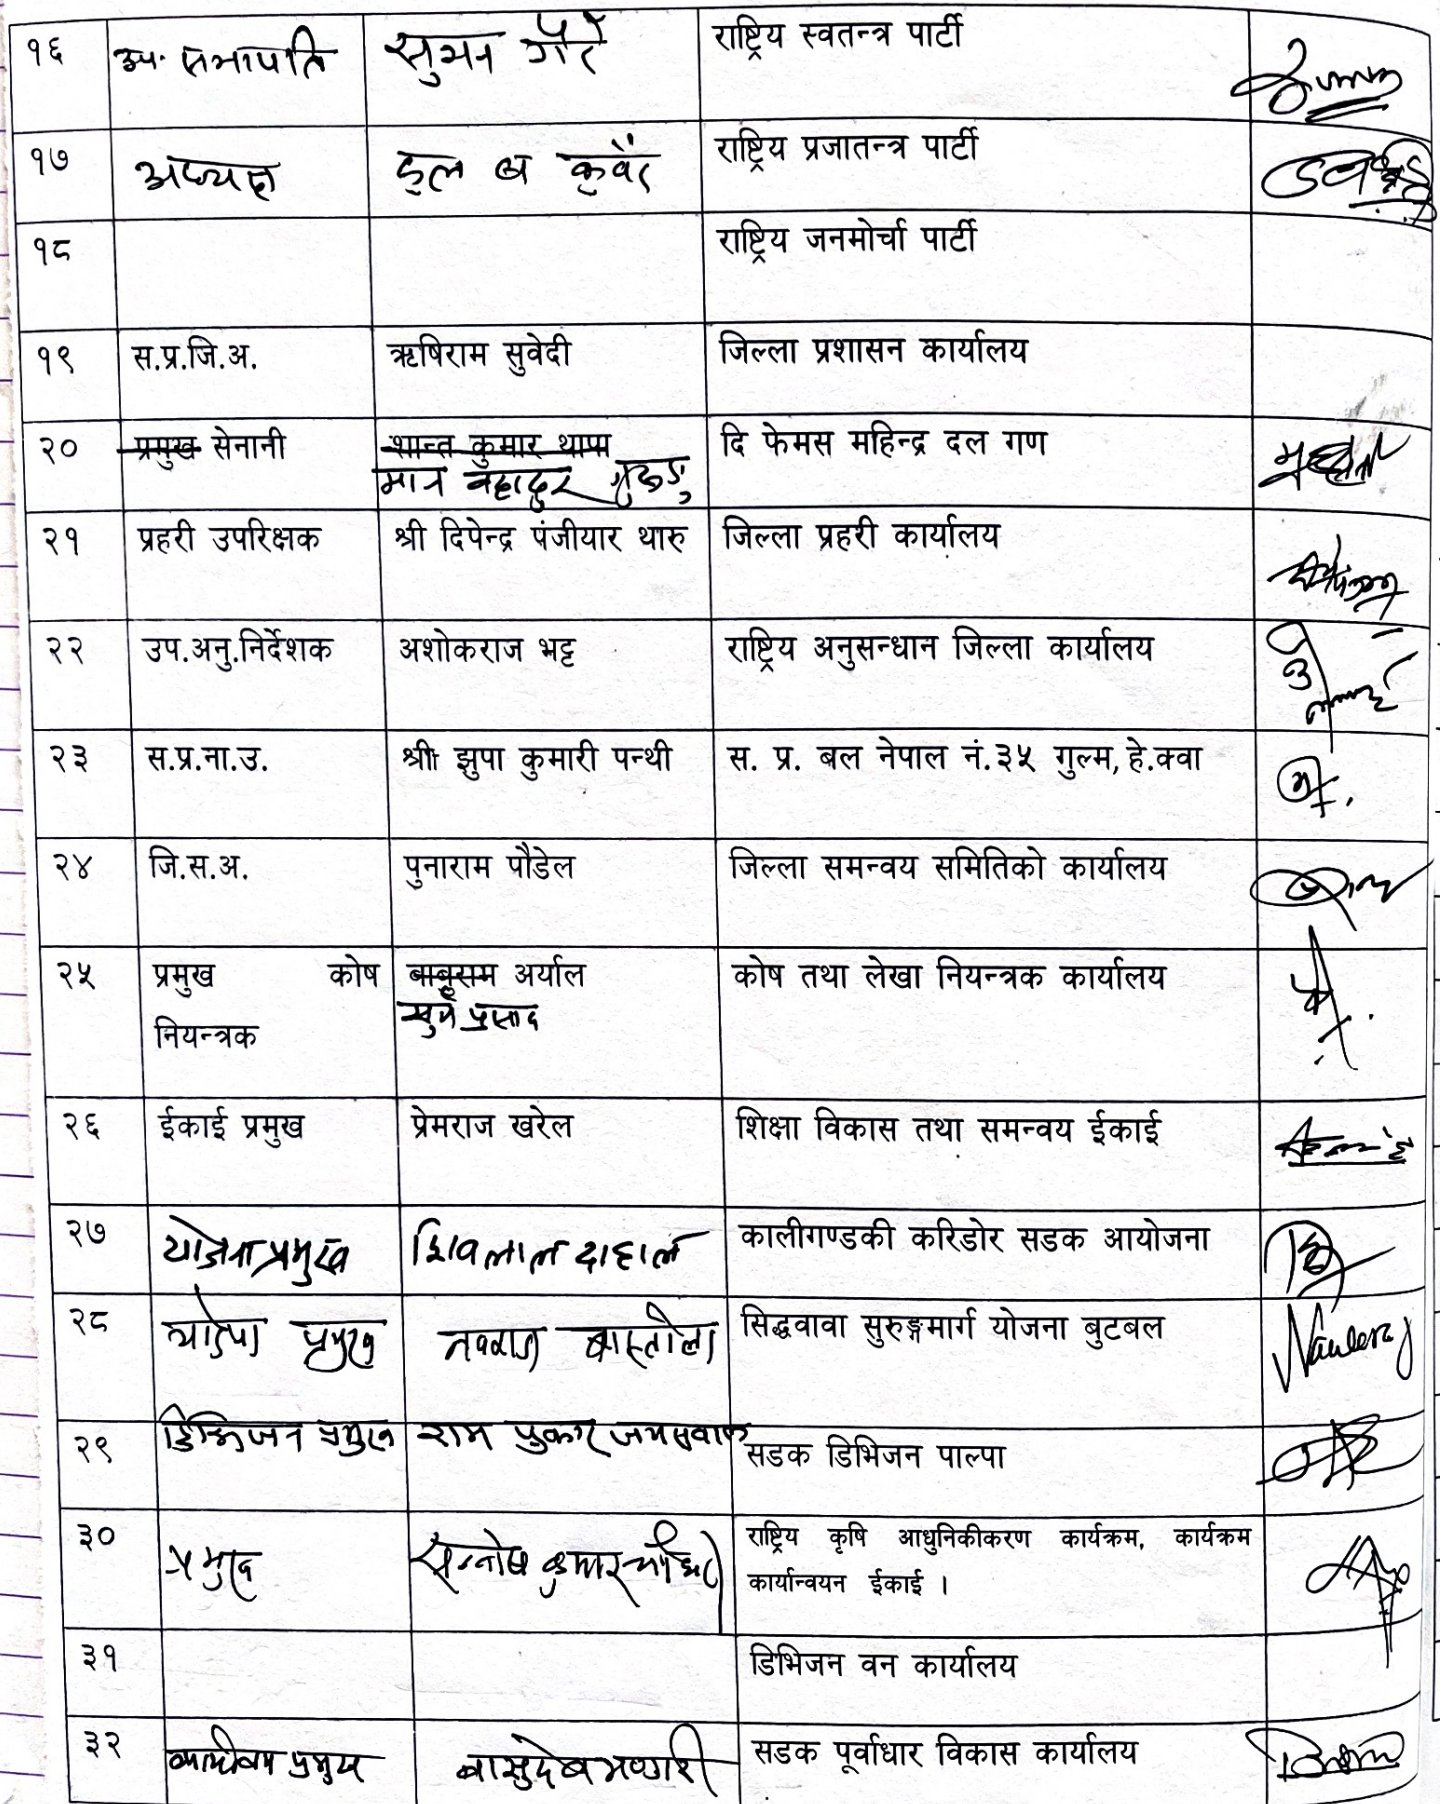 १६ उप. सभापति सुमन गैरे राष्ट्रिय स्वतन्त्र पार्टी
१७ अध्यक्ष कुल ब कुवँर राष्ट्रिय प्रजातन्त्र पार्टी
१८ राष्ट्रिय जनमोर्चा पार्टी
१९ स.प्र.जि.अ. ऋषिराम सुवेदी जिल्ला प्रशासन कार्यालय
२० प्रमुख सेनानी शान्त कुमार थापा दि फेमस महिन्द्र दल गण
मान बहादुर गुरुङ
२१ प्रहरी उपरिक्षक श्री दिपेन्द्र पंजीयार थारु जिल्ला प्रहरी कार्यालय
२२ उप.अनु.निर्देशक अशोकराज भट्ट राष्ट्रिय अनुसन्धान जिल्ला कार्यालय
२३ स.प्र.ना.उ. श्री झुपा कुमारी पन्थी स. प्र. बल नेपाल नं.३५ गुल्म, हे.क्वा
२४ जि.स.अ. पुनाराम पौडेल जिल्ला समन्वय समितिको कार्यालय
२५ प्रमुख कोष बाबुराम अर्याल कोष तथा लेखा नियन्त्रक कार्यालय
नियन्त्रक सुर्य प्रसाद
२६ ईकाई प्रमुख प्रेमराज खरेल शिक्षा विकास तथा समन्वय ईकाई
२७ योजना प्रमुख शिवलाल दाहाल कालीगण्डकी करिडोर सडक आयोजना
२८ प्रमुख नवराज बास्तोला सिद्धवावा सुरुङ्गमार्ग योजना बुटबल
२९ डिभिजन प्रमुख राम पुकार जयसवाल सडक डिभिजन पाल्पा
३० प्रमुख सन्तोष कुमार राष्ट्रिय कृषि आधुनिकीकरण कार्यक्रम, कार्यक्रम
कार्यान्वयन ईकाई ।
३१ डिभिजन वन कार्यालय
३२ कार्यालय प्रमुख बासुदेब भण्डारी सडक पूर्वाधार विकास कार्यालय